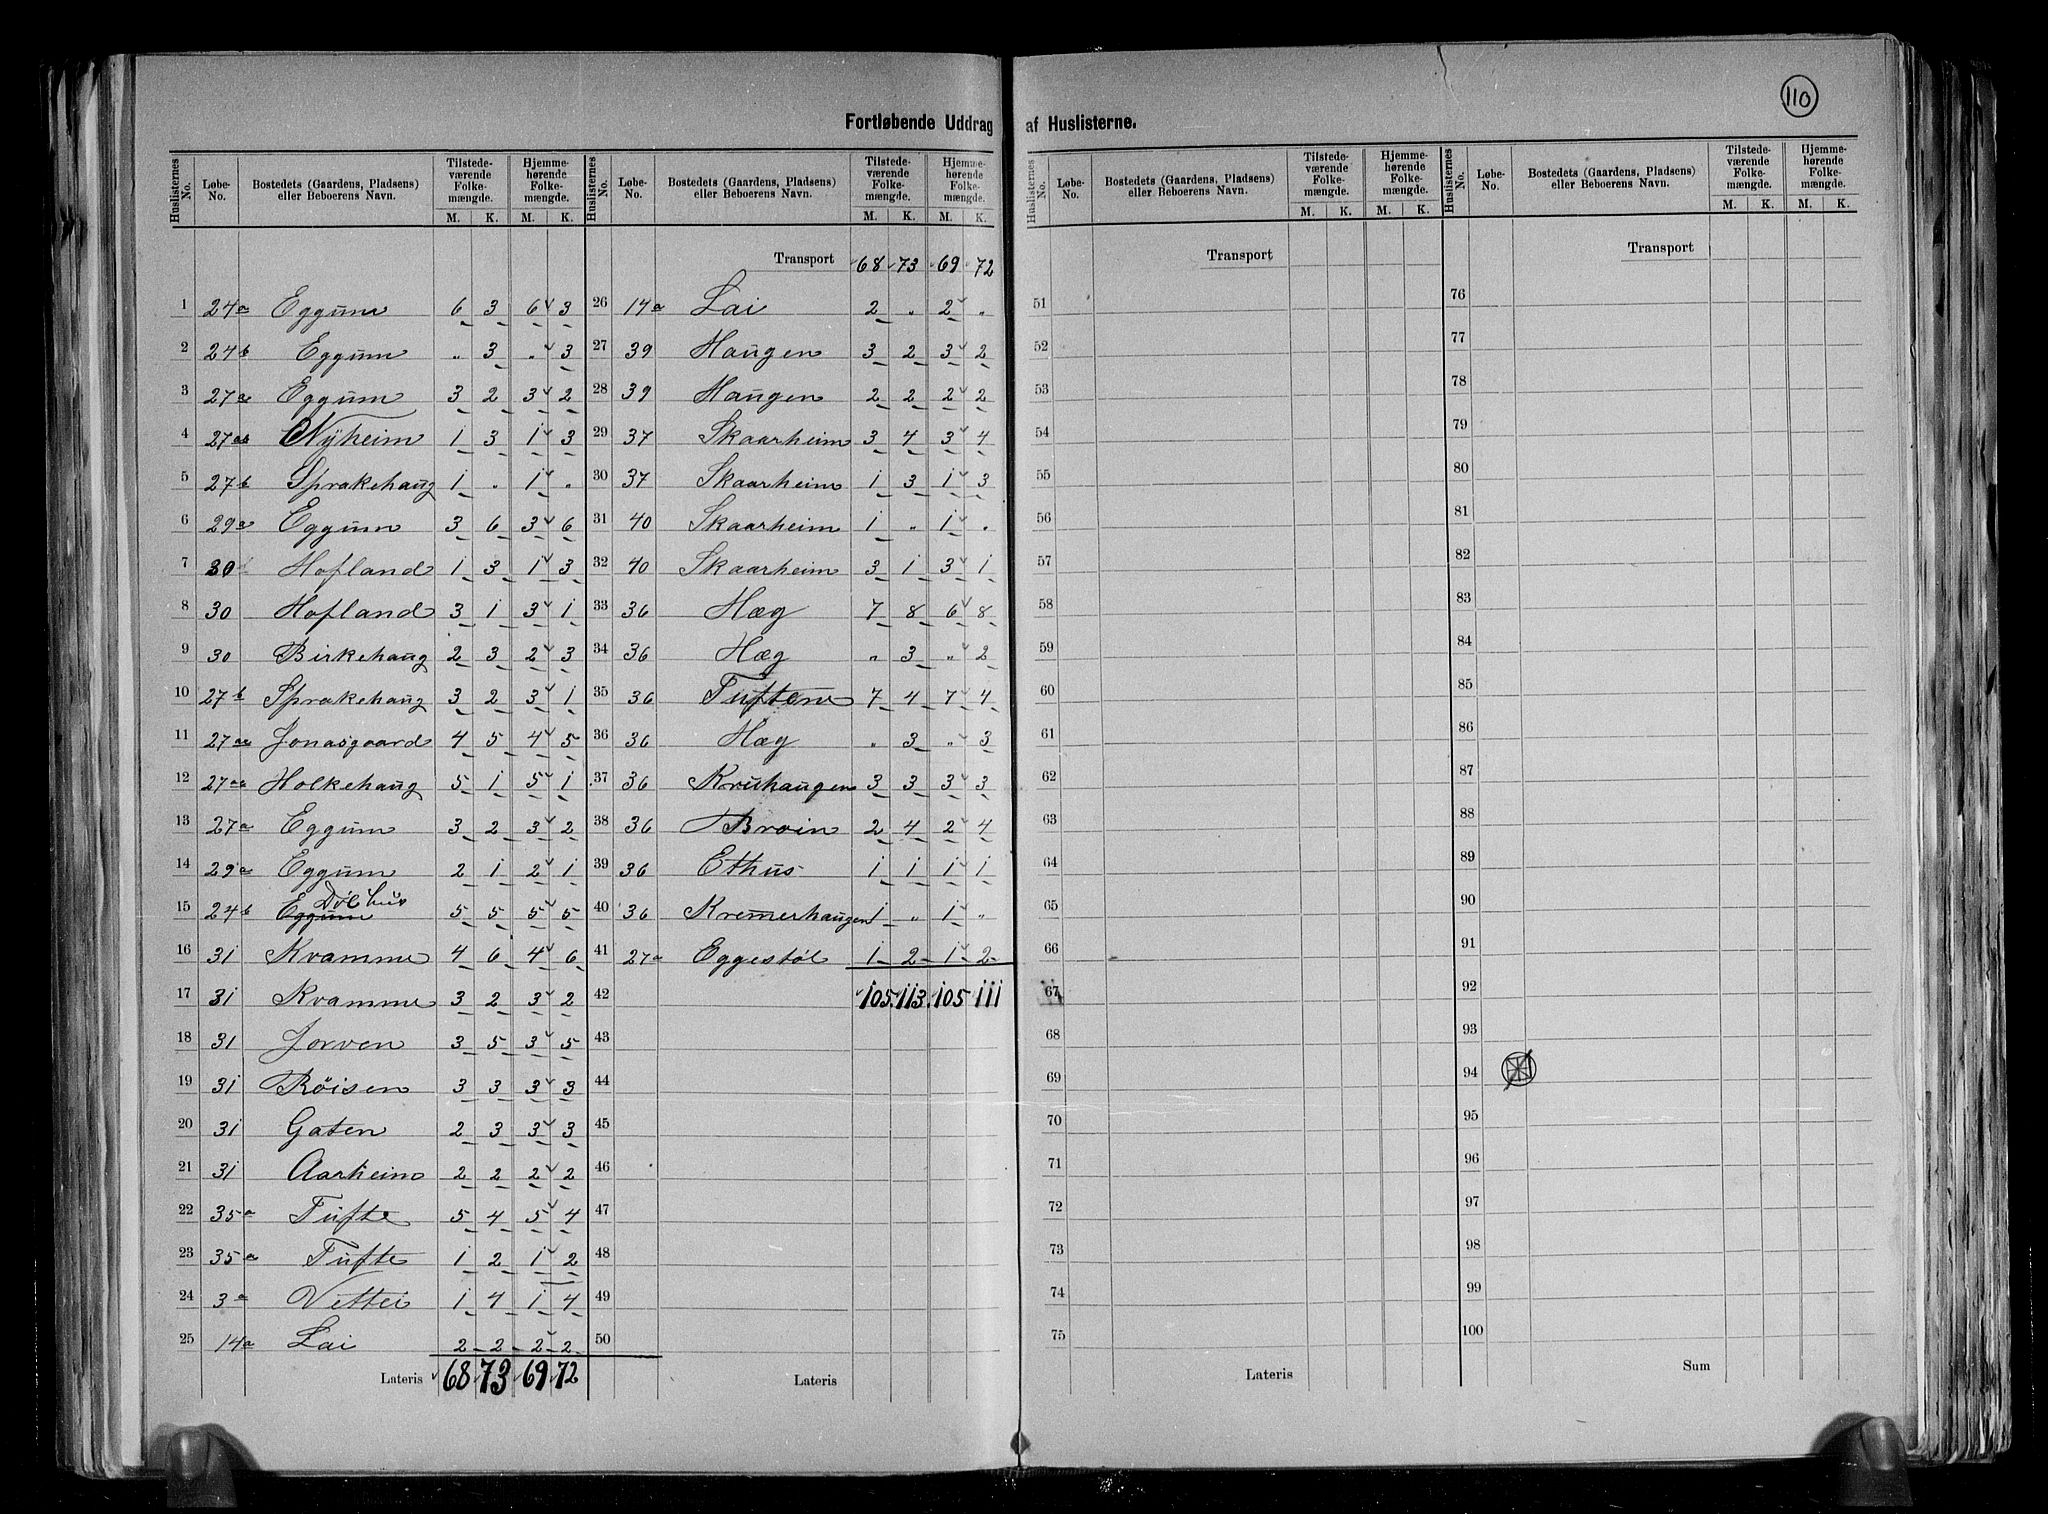 110
Fortløbende Uddrag af Huslisterne.
Huslisternes No. | Løbe-No. | Bostedets (Gaardens, Pladsens) eller Beboerens Navn. | Tilstedeværende Folkemængde. M. K. | Hjemmehørende Folkemængde. M. K.
1 24a Eggum 6 3 6 3
2 24b Eggum " 3 " 3
3 27a Eggum 3 2 3 2
4 27a Nyheim 1 3 1 3
5 27b Sprakehaug 1 " 1 "
6 29a Eggum 3 6 3 6
7 30 Hofland 1 3 1 3
8 30 Hofland 3 1 3 1
9 30 Birkehaug 2 3 2 3
10 27b Sprakehaug 3 2 3 1
11 27a Jonasgaard 4 5 4 5
12 27a Holkehaug 5 1 5 1
13 27a Eggum 3 2 3 2
14 29a Eggum 2 1 2 1
15 24b Eggum 5 5 5 5
16 31 Kvamme 4 6 4 6
17 31 Kvamme 3 2 3 2
18 31 Jorven 3 5 3 5
19 31 Røisen 3 3 3 3
20 31 Gaten 2 3 3 3
21 31 Aarheim 2 2 2 2
22 35a Tufte 5 4 5 4
23 35a Tufte 1 2 1 2
24 3a Vettei 1 4 1 4
25 14a Lai 2 2 2 2
Lateris 68 73 69 72
Huslisternes No. | Løbe-No. | Bostedets (Gaardens, Pladsens) eller Beboerens Navn. | Tilstedeværende Folkemængde. M. K. | Hjemmehørende Folkemængde. M. K.
Transport 68 73 69 72
26 14a Lai 2 " 2 "
27 39 Haugen 3 2 3 2
28 39 Haugen 2 2 2 2
29 37 Skaarheim 3 4 3 4
30 37 Skaarheim 1 3 1 3
31 40 Skaarheim 1 " 1 "
32 40 Skaarheim 3 1 3 1
33 36 Hæg 7 8 6 8
34 36 Hæg " 3 " 2
35 36 Tuftene 7 4 7 4
36 36 Hæg " 3 " 3
37 36 Kruhaugen 3 3 3 3
38 36 Broin 2 4 2 4
39 36 Ethus 1 1 1 1
40 36 Kremerhaugen 1 " 1 "
41 27a Eggestøl 1 2 1 2
42 105 113 105 111
43
44
45
46
47
48
49
50
Lateris
Huslisternes No. | Løbe-No. | Bostedets (Gaardens, Pladsens) eller Beboerens Navn. | Tilstedeværende Folkemængde. M. K. | Hjemmehørende Folkemængde. M. K.
Transport
51
52
53
54
55
56
57
58
59
60
61
62
63
64
65
66
67
68
69
70
71
72
73
74
75
Lateris
Huslisternes No. | Løbe-No. | Bostedets (Gaardens, Pladsens) eller Beboerens Navn. | Tilstedeværende Folkemængde. M. K. | Hjemmehørende Folkemængde. M. K.
Transport
76
77
78
79
80
81
82
83
84
85
86
87
88
89
90
91
92
93
94
95
96
97
98
99
100
Sum